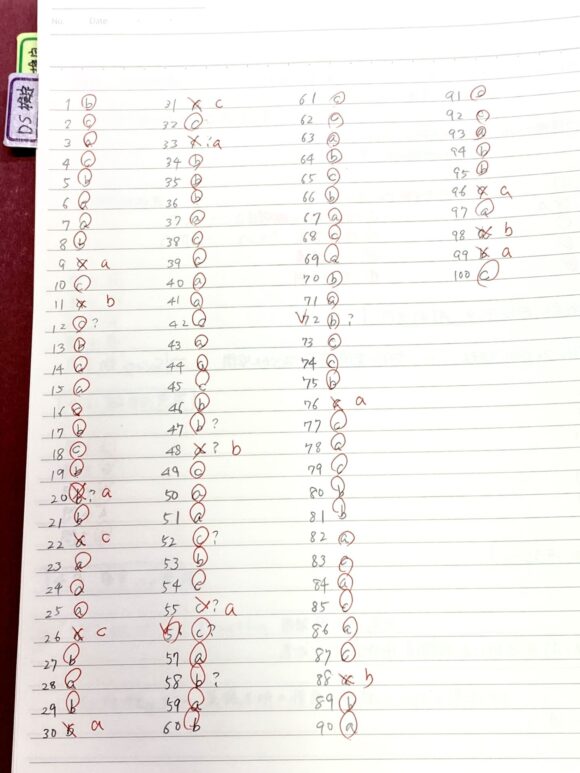 No.
Date
DS検定
1 b
2 c
3 a
4 c
5 b
6 a
7 a
8 b
9 a
10 c
11 b
12 c ?
13 b
14 a
15 a
16 c
17 b
18 c
19 b
20 b ? a
21 b
22 a c
23 a
24 a
25 a
26 c
27 b
28 a
29 b
30 b a
31 c
32 c
33 a
34 b
35 b
36 b
37 a
38 c
39 c
40 a
41 a
42 c
43 a
44 a
45 c
46 b
47 b ?
48 ? b
49 c
50 a
51 a
52 c ?
53 b
54 c
55 c ? a
56 c ?
57 a
58 b ?
59 a
60 b
61 c
62 c
63 a
64 b
65 c
66 b
67 a
68 c
69 a
70 b
71 a
72 b ?
73 c
74 c
75 b
76 a
77 c
78 a
79 c
80 b
81 b
82 a
83 c
84 a
85 c
86 a
87 c
88 b
89 b
90 a
91 c
92 c
93 a
94 b
95 b
96 a
97 a
98 b
99 a
100 c